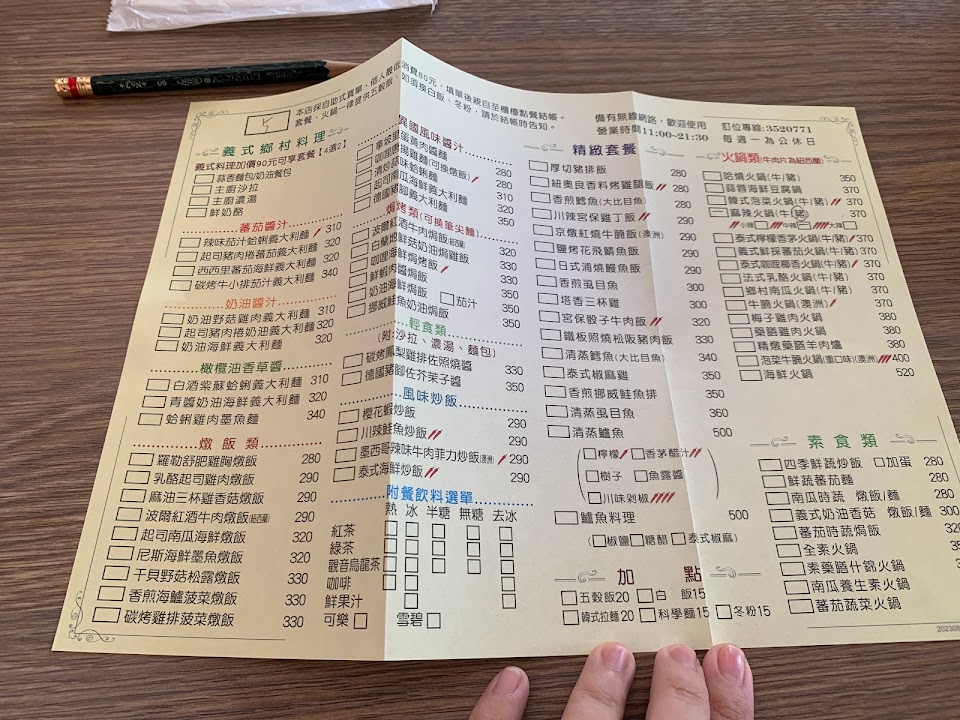 本店採自助式買單，個人最低消費80元，填單後親自至櫃檯點餐結帳。
套餐、火鍋一律提供五穀飯，如須換白飯、冬粉，請於結帳時告知。
備有無線網路，歡迎使用
營業時間11:00~21:30
訂位專線:3520771
每週一為公休日
義式鄉村料理
義式料理加價90元可享套餐【4選2】
蒜香麵包/奶油餐包
主廚沙拉
主廚濃湯
鮮奶酪
蕃茄醬汁
辣味茄汁蛤蜊義大利麵 310
起司豬肉捲蕃茄義大利麵 320
西西里蕃茄海鮮義大利麵 320
碳烤牛小排茄汁義大利麵 340
奶油醬汁
奶油野菇雞肉義大利麵 310
起司豬肉捲奶油義大利麵 320
奶油海鮮義大利麵 320
橄欖油香草醬
白酒紫蘇蛤蜊義大利麵 310
青醬奶油海鮮義大利麵 320
蛤蜊雞肉墨魚麵 340
燉飯類
羅勒舒肥雞胸燉飯 280
乳酪起司雞肉燉飯 290
麻油三杯雞香菇燉飯 290
波爾紅酒牛肉燉飯(紐西蘭) 290
起司南瓜海鮮燉飯 320
尼斯海鮮墨魚燉飯 320
干貝野菇松露燉飯 330
香煎海鱸菠菜燉飯 330
碳烤雞排菠菜燉飯 330
異國風味醬汁
拿坡里蛋黃肉醬麵 280
咖哩唐揚雞麵(可換燉飯) 280
清炒蒜味蛤蜊麵 310
起司南瓜海鮮義大利麵 320
德國豬腳義大利麵 350
焗烤類(可換筆尖麵)
波爾紅酒牛肉焗飯(紐西蘭) 320
白蘭地鮮菇奶油焗雞飯 320
咖哩海鮮焗烤飯 330
鮮蝦肉醬焗飯 330
奶油海鮮焗飯 茄汁 350
挪威鮭魚奶油焗飯 350
輕食類
(附:沙拉、濃湯、麵包)
碳烤鳳梨雞排佐照燒醬 330
德國豬腳佐芥茉子醬 350
風味炒飯
櫻花蝦炒飯 290
川辣鮭魚炒飯 290
墨西哥辣味牛肉菲力炒飯(澳洲) 290
泰式海鮮炒飯 290
附餐飲料選單
熱 冰 半糖 無糖 去冰
紅茶
綠茶
觀音烏龍茶
咖啡
鮮果汁
可樂 雪碧
精緻套餐
厚切豬排飯 280
紐奧良香料烤雞腿飯 280
香煎鱈魚(大比目魚) 280
川辣宮保雞丁飯 290
京燉紅燒牛腩飯(澳洲) 290
鹽烤花飛鯖魚飯 290
日式浦燒鰻魚飯 290
香煎虱目魚 300
塔香三杯雞 300
宮保骰子牛肉飯 320
鐵板照燒松阪豬肉飯 330
清蒸鱈魚(大比目魚) 340
泰式椒麻雞 350
香煎挪威鮭魚排 350
清蒸虱目魚 360
清蒸鱸魚 500
檸檬 香茅醋汁
樹子 魚露醬
川味剁椒
鱸魚料理 500
(椒鹽 糖醋 泰式椒麻)
加點
五穀飯20 白飯15
韓式拉麵20 科學麵15 冬粉15
火鍋類(牛肉片為紐西蘭)
哈燒火鍋(牛/豬) 350
蒜蓉海鮮豆腐鍋 370
韓式泡菜火鍋(牛/豬) 370
麻辣火鍋(牛/豬) 370
小辣 中辣 大辣
泰式檸檬香茅火鍋(牛/豬) 370
義式鮮採蕃茄火鍋(牛/豬) 370
泰式咖哩椰香火鍋(牛/豬) 370
法式乳酪火鍋(牛/豬) 370
鄉村南瓜火鍋(牛/豬) 370
牛腩火鍋(澳洲) 370
梅子雞肉火鍋 370
藥膳雞肉火鍋 370
精燉藥膳羊肉爐 370
泡菜牛腩火鍋(重口味)(澳洲) 400
海鮮火鍋 520
素食類
四季鮮蔬炒飯 加蛋 280
鮮蔬蕃茄麵 280
南瓜時蔬 燉飯/麵 280
義式奶油香菇 燉飯/麵 300
蕃茄時蔬焗飯
全素火鍋
素藥膳什錦火鍋
南瓜養生素火鍋
蕃茄蔬菜火鍋